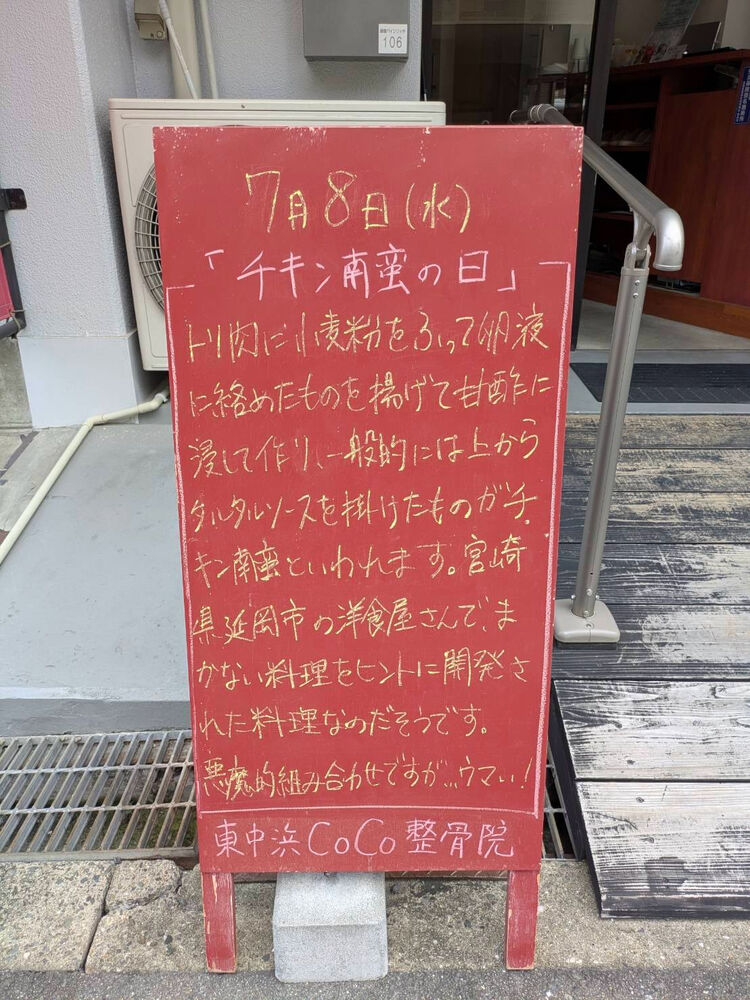 106
7月8日(水)
「チキン南蛮の日」
トリ肉に小麦粉をふって卵液
に絡めたものを揚げて甘酢に
浸して作り、一般的には上から
タルタルソースを掛けたものがチ
キン南蛮といわれます。宮崎
県延岡市の洋食屋さんで、ま
かない料理をヒントに開発さ
れた料理なのだそうです。
悪魔的組み合わせですが...ウマい!
東中浜CoCo整骨院